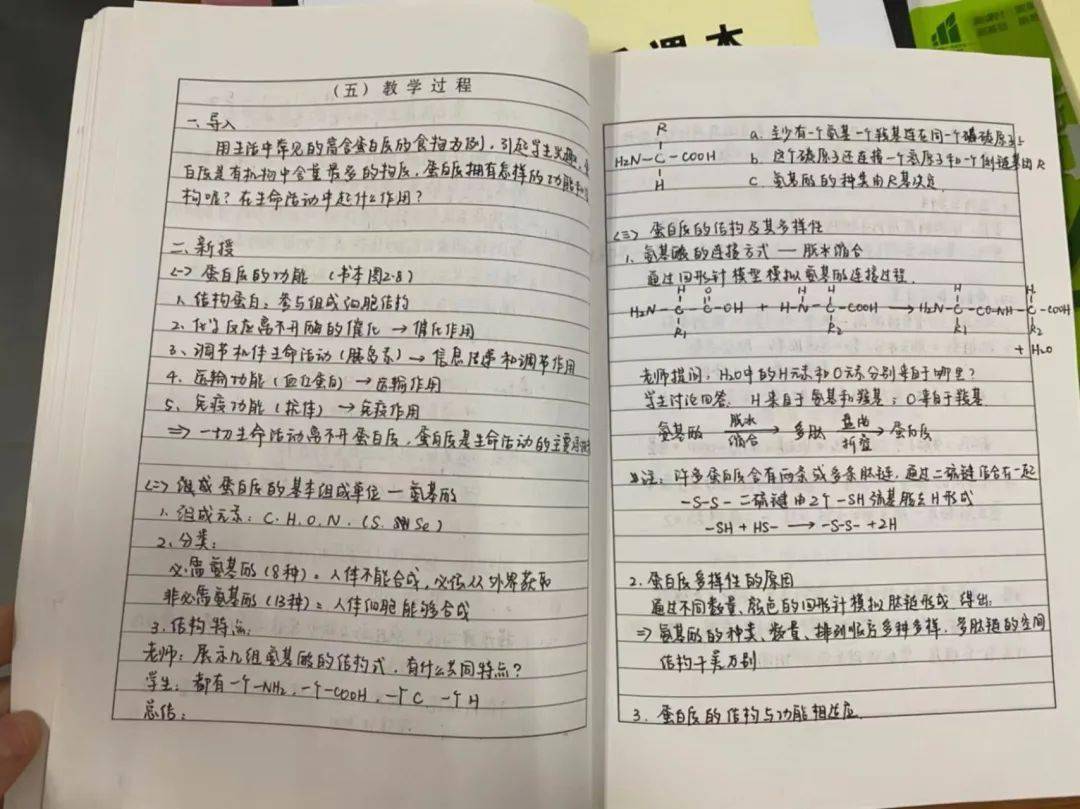 课本
(五) 教学过程
一、导入
用生活中常见的富含蛋白质的食物为例,引起学生兴趣,
白质是有机物中含量最多的物质,蛋白质拥有怎样的功能和
构呢?在生命活动中起什么作用?
二、新授
(一) 蛋白质的功能 (书本图2-8)
1. 结构蛋白:参与组成细胞结构
2. 化学反应离不开酶的催化 → 催化作用
3、调节机体生命活动(胰岛素)→ 信息传递和调节作用
4. 运输功能(血红蛋白) → 运输作用
5、免疫功能(抗体) → 免疫作用
⇒ 一切生命活动离不开蛋白质,蛋白质是生命活动的主要
(二) 组成蛋白质的基本组成单位 — 氨基酸
1. 组成元素:C.H.O.N.(S. Se)
2、分类:
必需氨基酸(8种)。人体不能合成,必须从外界获取
非必需氨基酸(13种):人体细胞能够合成
3.结构特点:
老师:展示几组氨基酸的结构式,有什么共同特点?
学生:都有一个-NH2、一个-COOH、一个C 一个H
总结:
R
H2N-C-COOH
H
a. 至少有一个氨基一个羧基连在同一个碳原子上
b. 这个碳原子还连接一个氢原子和一个侧链基团R
c. 氨基酸的种类由R基决定
(三) 蛋白质的结构及其多样性
1. 氨基酸的连接方式 — 脱水缩合
通过回形针模型模拟氨基酸连接过程.
H O H H H H
H2N-C-C-OH + H-N-C-COOH → H2N-C-CO-NH-C-COOH
R1 R2 R1 R2
+ H2O
老师提问:H2O中的H元素和O元素分别来自于哪里?
学生讨论回答. H来自于氨基和羧基;O来自于羧基.
氨基酸 脱水缩合→ 多肽 盘曲折叠→ 蛋白质
注:许多蛋白质含有两条或多条肽链,通过二硫键结合在一起
-S-S- 二硫键由2个-SH 巯基脱去H形成
-SH + HS- → -S-S- +2H
2. 蛋白质多样性的原因
通过不同数量、颜色的回形针模拟肽链形成 得出:
⇒ 氨基酸的种类、数量、排列顺序多种多样,多肽链的空间
结构千差万别
3. 蛋白质的结构与功能相适应.